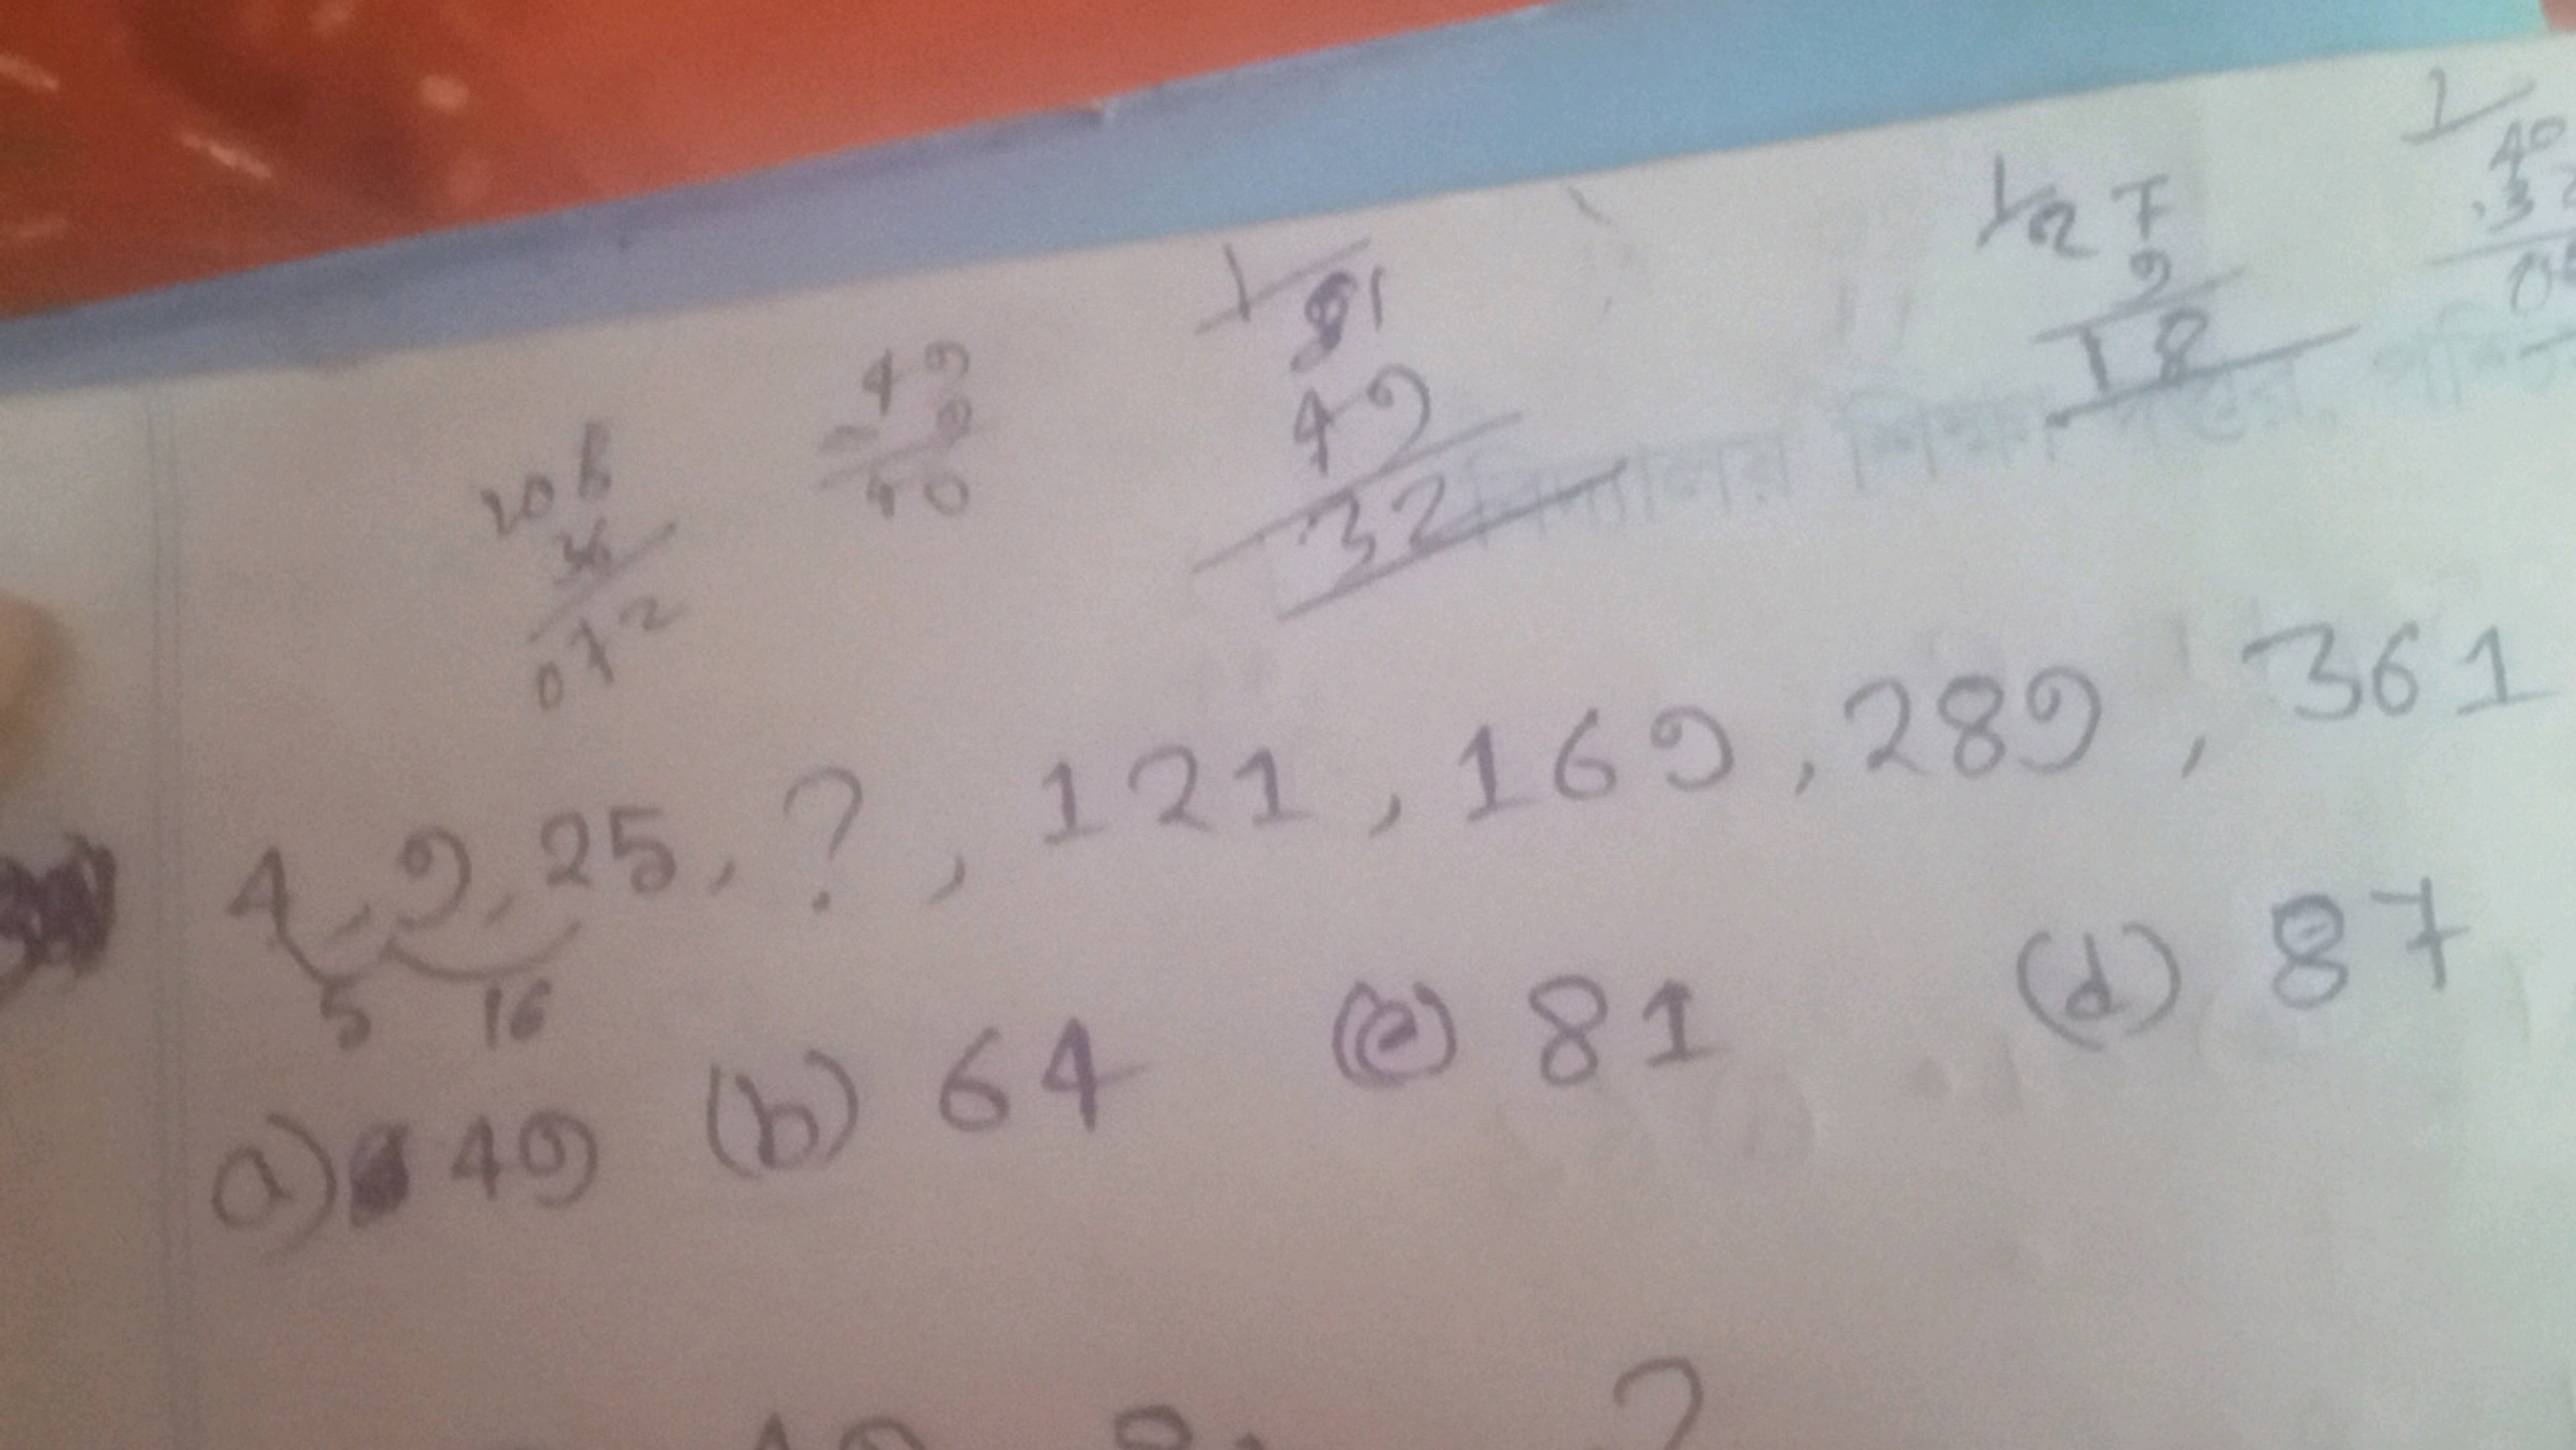 106
36
072
49
09
40
81
49
32
27
9
18
40
4, 9, 25, ?, 121, 169, 289, 361
5 16
a) 49 (b) 64 (c) 81 (d) 87